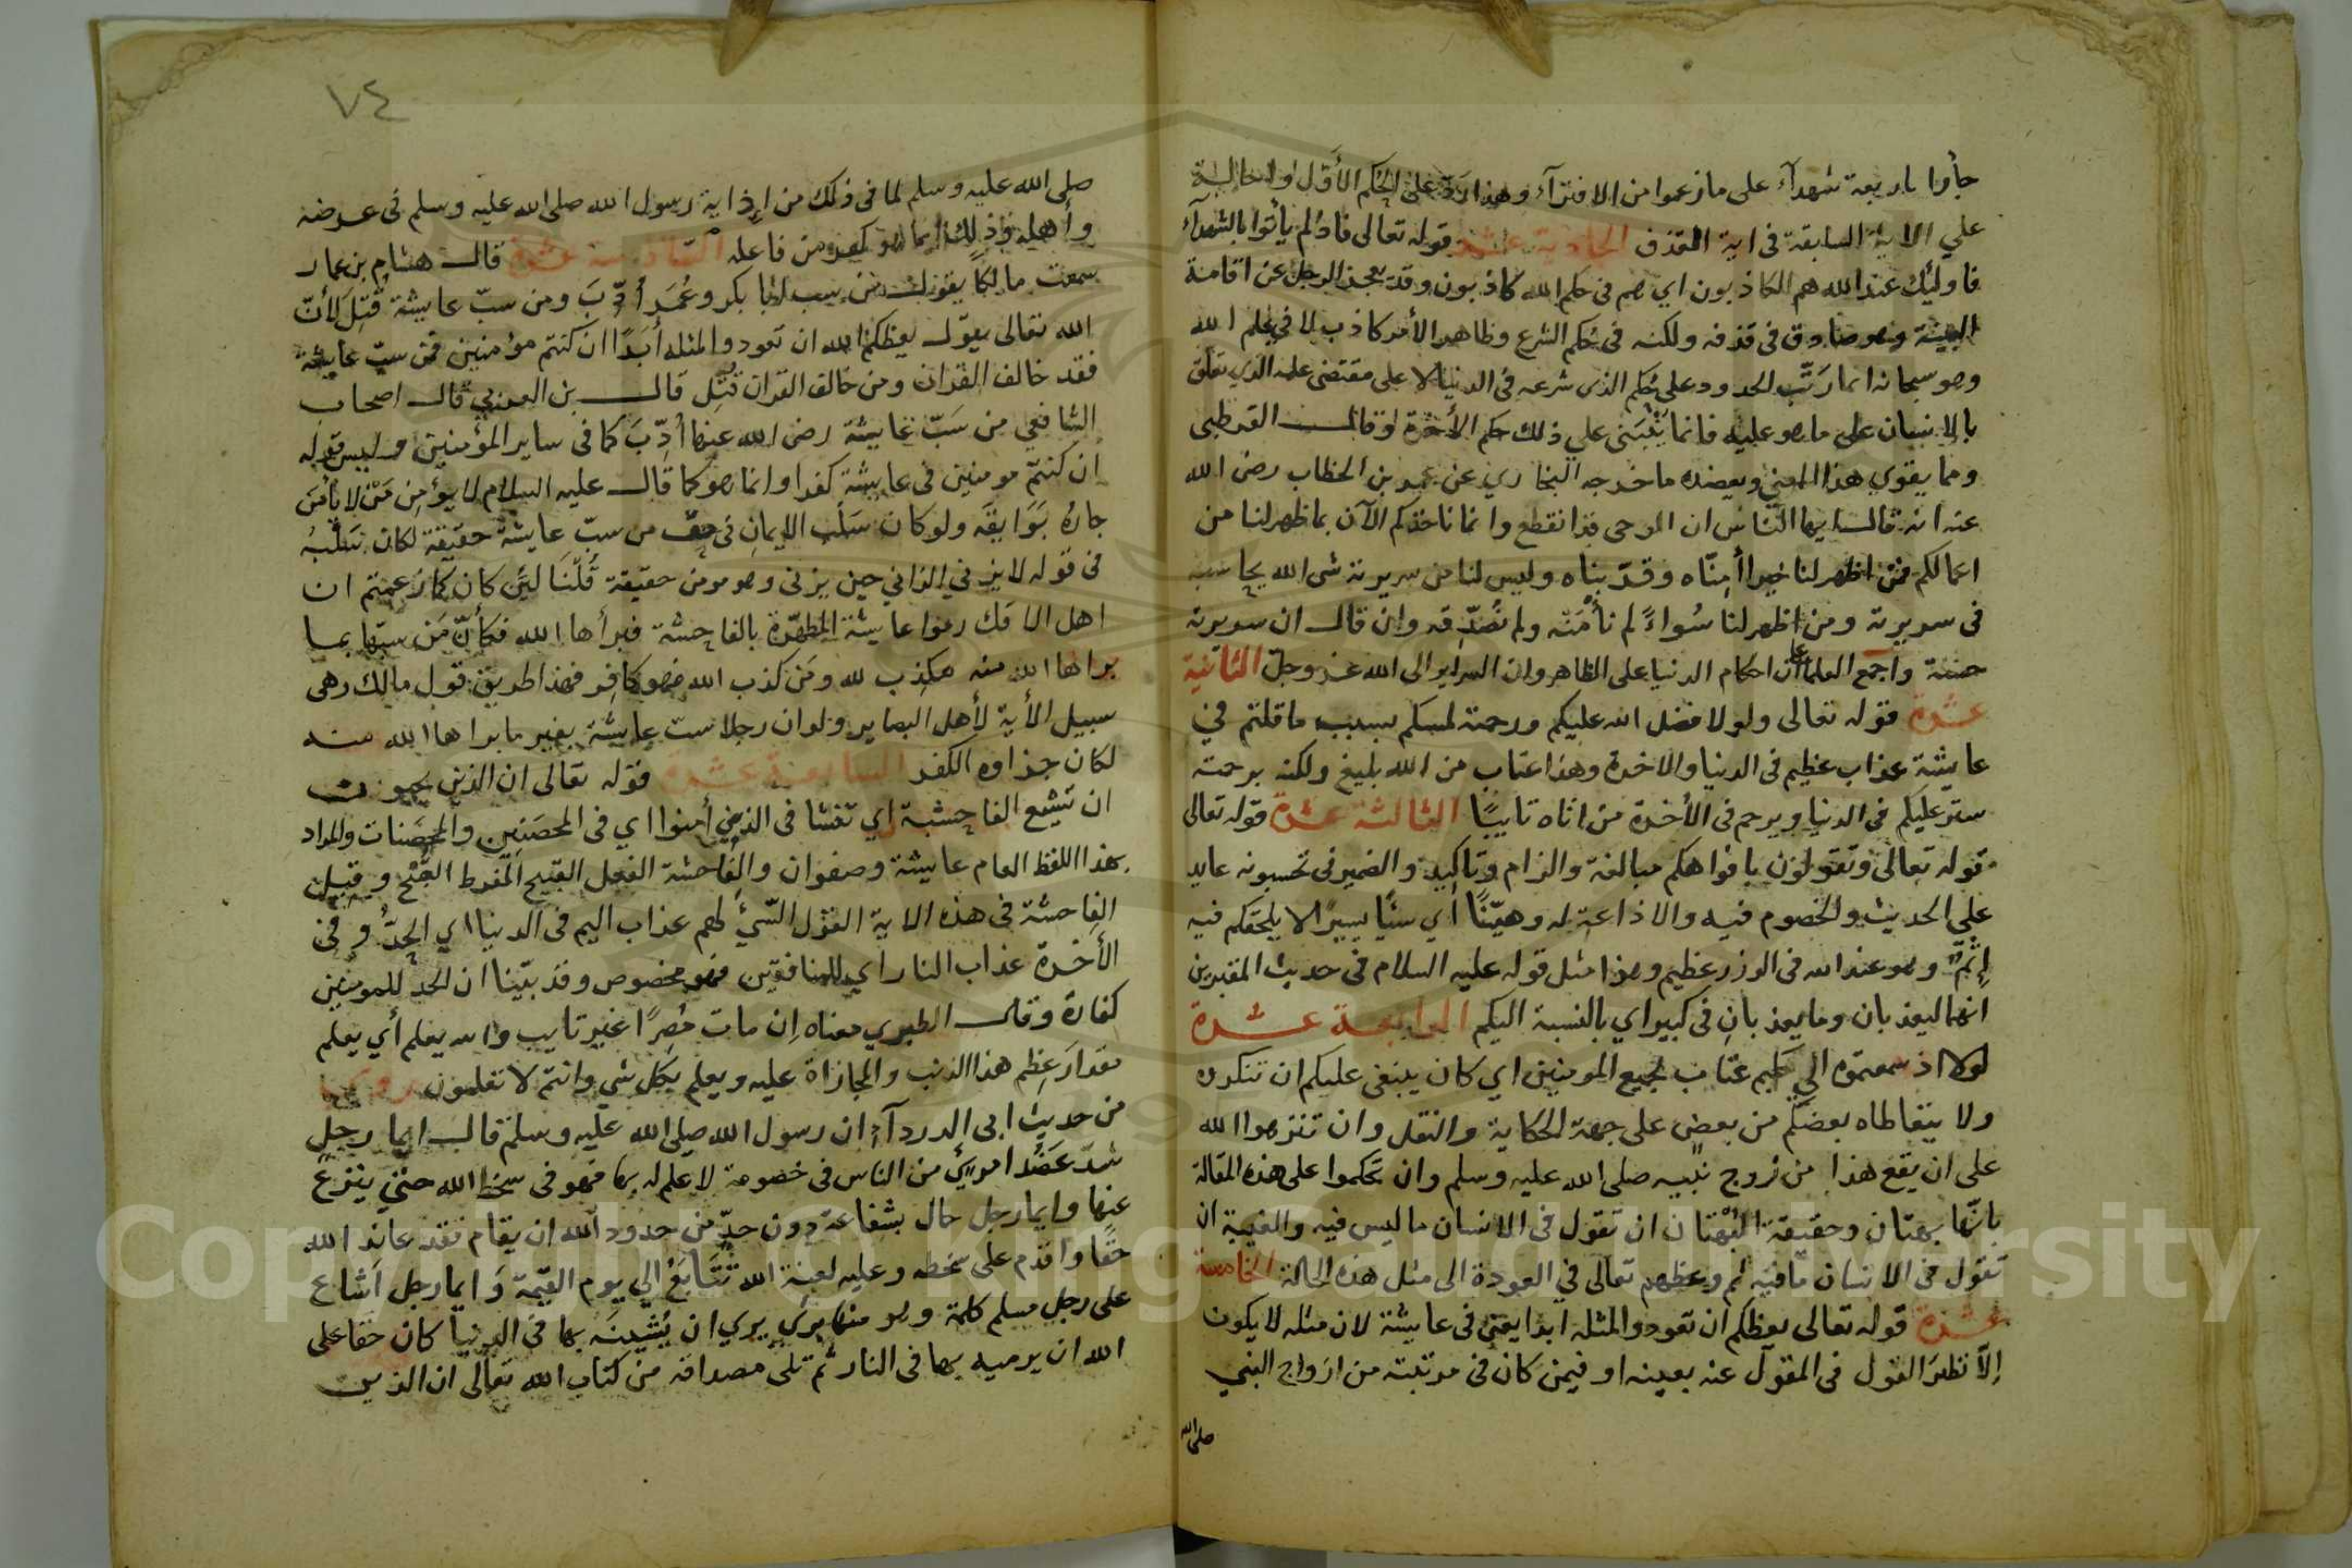 جاؤا باربعة شهدآء على ما زعموا من الافترآء وهذا رَدّ على الحُكم الأَوّل واحالة
علي الاية السابقة في اية القذف الحادية عشر قوله تعالى فاذ لم يأتوا بالشهدآء
فاوليك عند الله هم الكاذبون اي هم في حكم الله كاذبون وقد يعجز الرجل عن اقامة
البينة وهو صادق في قذفه ولكنه في حُكم الشرع وظاهر الأمر كاذب لا في علم الله
وهو سبحانه انما رَتّب الحدود على حُكم الذى شرعه في الدنيا لا على مقتضى علمه الذي تعلق
بالانسان على ما هو عليه فانما يَنْبَنى علي ذلك حكم الأخرة قال القرطبى
ومما يقوي هذا المعنى ويعضده ما خرجه البخاري عن عمر بن الخطاب رضى الله
عنه انه قال ايها الناس ان الوحى قد انقطع وانما ناخذكم الآن بما ظهر لنا من
اعمالكم فمن اظهر لنا خيرا أمِنّاه وقرّبناه وليس لنا من سريرته شى الله يحاسبه
في سريرته ومن اظهر لنا سُواءً لم نأمَنْه ولم نُصَدّقه وان قال ان سريرته
حسنة واجمع العلماء ان احكام الدنيا على الظاهر وان السراير الى الله عز وجل الثانية
عشرة قوله تعالى ولولا فضل الله عليكم ورحمته لمسكم بسبب ما قلتم في
عايشة عذاب عظيم في الدنيا والاخرة وهذا عتاب من الله بليغ ولكنه برحمته
ستر عليكم في الدنيا ويرحم في الأخرة من اتاه تايبًا الثالثة عشرة قوله تعالى
قوله تعالى وتقولون بافواهكم مبالغة والزام وتاكيد والضمير في تحسبونه عايد
على الحديث والخصوم فيه والاذاعة له وهيّنًا أي سيًا يسيرًا لا يلحقكم فيه
إثمٌ وهو عند الله في الوزر عظيم وهذا مثل قوله عليه السلام في حديث المقبرين
انهما ليعذبان وما يعذبان في كبير اي بالنسبة اليكم الرابعة عشرة
لولا اذ سمعتموه الي عظيم عتاب لجميع المومنين اي كان ينبغى عليكم ان تنكروه
ولا يتعاطاه بعضكم من بعض على جهة الحكاية والنقل وان تنزهوا الله
على ان يقع هذا من زوج نبيه صلى الله عليه وسلم وان تحكموا على هذه المقالة
بانّها بهتان وحقيقة البُهْتان ان تقول في الانسان ما ليس فيه والغيبة ان
تقول في الانسان ما فيه ثم وعظهم تعالى في العودة الى مثل هذه الحالة الخامسة
عشرة قوله تعالى يعظكم ان تعودوا لمثله ابدا يعنى في عايشة لان مثله لا يكون
إلاّ نظيرَ القول في المقول عنه بعينه او فيمن كان في مرتبته من ازواج النبي
صلى الله
٧٤
صلى الله عليه وسلم لما في ذلك من إذاية رسول الله صلى الله عليه وسلم في عرضه
وأهله وذلك انما هو كفر من فاعله السادسة عشرة قال هشام بن عمار
سمعت مالكًا يقول من سب ابا بكر وعُمَر أُدّبَ ومن سبّ عايشة قُتِلَ لأنّ
الله تعالى يقول يعظكم الله ان تعودوا لمثله أَبَدًا ان كنتم مؤمنين فمن سبّ عايشة
فقد خالف القران ومن خالف القران قُتِل قال بن العربي قال اصحاب
الشافعي من سَبّ عايشة رضى الله عنها أُدِّبَ كما في ساير المؤمنين وليس قوله
ان كنتم مومنين في عايشة كفرا وانما هو كما قال عليه السلام لا يؤمِن مَنْ لا يأمَن
جارُه بَوَايقَه ولو كان سَلْب الايمان في حق من سبّ عايشة حقيقة لكان سَلْبُه
في قوله لا يزني الزاني حين يزني وهو مومن حقيقة قُلْنَا ليَّن كان كما زعمتم ان
اهل الافك رموا عايشة المطهّرة بالفاحشة فبرأها الله فكأنّ مَن سبّها بما
براها الله منه مكذِب لله ومَن كذب الله فهو كافر فهذا طريق قول مالك وهى
سبيل الأية لأهل البصاير ولو ان رجلا سبّ عايشة بغير ما براها الله منه
لكان جزاوه الكفر السابعة عشرة قوله تعالى ان الذين يحبون
ان تشيع الفاحشة اي تفشا في الذين أمنوا اي في المحصَنين والمحصَنات والمراد
بهذا اللفظ العام عايشة وصفوان والفاحشة الفعل القبيح المفرط القُبْح وقيل
الفاحشة في هذه الاية القول السّيئ لهم عذاب اليم في الدنيا اي الحدُّ وفي
الأخرة عذاب النار اي للمنافقين فهو مخصوص وقد بيّنا ان الحد للمومنين
كفارة وقال الطبري معناه إن مات مُصرًا غير تايب والله يعلم أي يعلم
مقدارَ عِظم هذا الذنب والمجازاة عليه ويعلم بكل شي وانتم لا تعلمون
من حديث ابى الدردآء ان رسول الله صلى الله عليه وسلم قال ايما رجل
شدّ عَضُد امرئ من الناس في خصومة لا علم له بها فهو في سخط الله حتى ينزع
عنها وايما رجل حال بشفاعة دون حدّ من حدود الله ان يقام فقد عاند الله
حقًا واقدم على سخطه وعليه لعنة الله تَتَابَعُ الى يوم القيمة وَايما رجل أشاع
على رجل مسلم كلمة وهو منها برئ يري ان يُشينَه بها في الدنيا كان حقا على
الله ان يرميه بها في النار ثم تلى مصداقه من كتاب الله تعالى ان الذين
Copyright © King Saud University